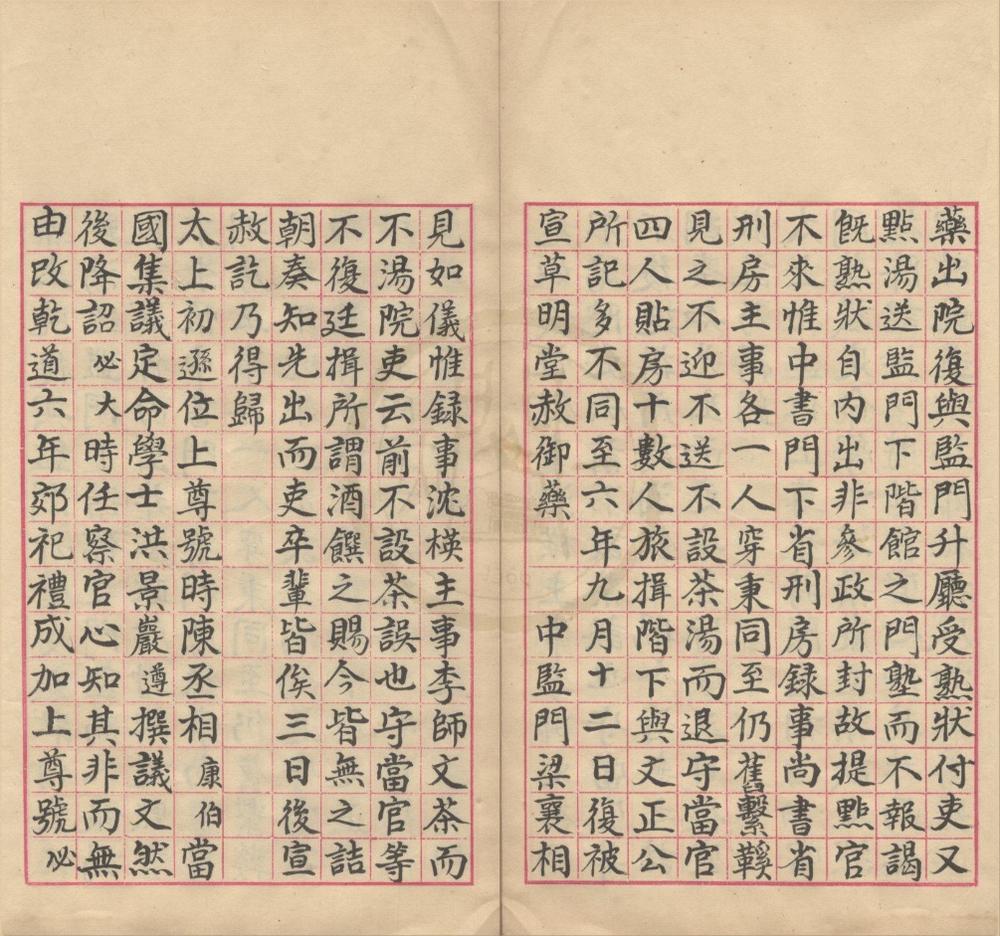 藥出院復與監門升廳受熟狀付吏又
點湯送監門下階館之門塾而不報謁
旣熟狀自内出非參政所封故提點官
不來惟中書門下省刑房録事尚書省
刑房主事各一人穿秉同至仍舊繫鞵
見之不迎不送不設茶湯而退守當官
四人貼房十數人旅揖階下與文正公
所記多不同至六年九月十二日復被
宣草明堂赦御藥 中監門梁襄相
見如儀惟録事沈模主事李師文茶而
不湯院吏云前不設茶誤也守當官等
不復廷揖所謂酒饌之賜今皆無之詰
朝奏知先出而吏卒輩皆俟三日後宣
赦訖乃得歸
太上初遜位上尊號時陳丞相康伯當
國集議定命學士洪景嚴遵撰議文然
後降詔必大時任察官心知其非而無
由改乾道六年郊祀禮成加上尊號必